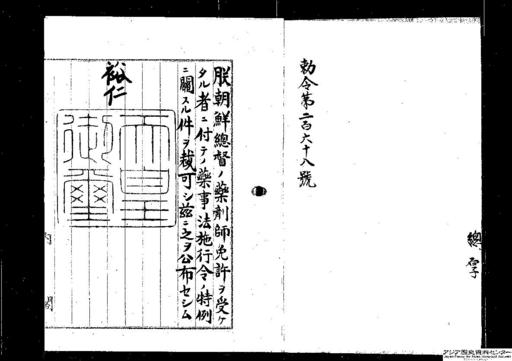 勅令第二百六十八號
朕朝鮮總督ノ藥劑師免許ヲ受ケ
タル者ニ付テノ藥事法施行令ノ特例
ニ關スル件ヲ裁可シ茲ニ之ヲ公布セシム
裕仁
天皇
御璽
内閣
アジア歴史資料センター